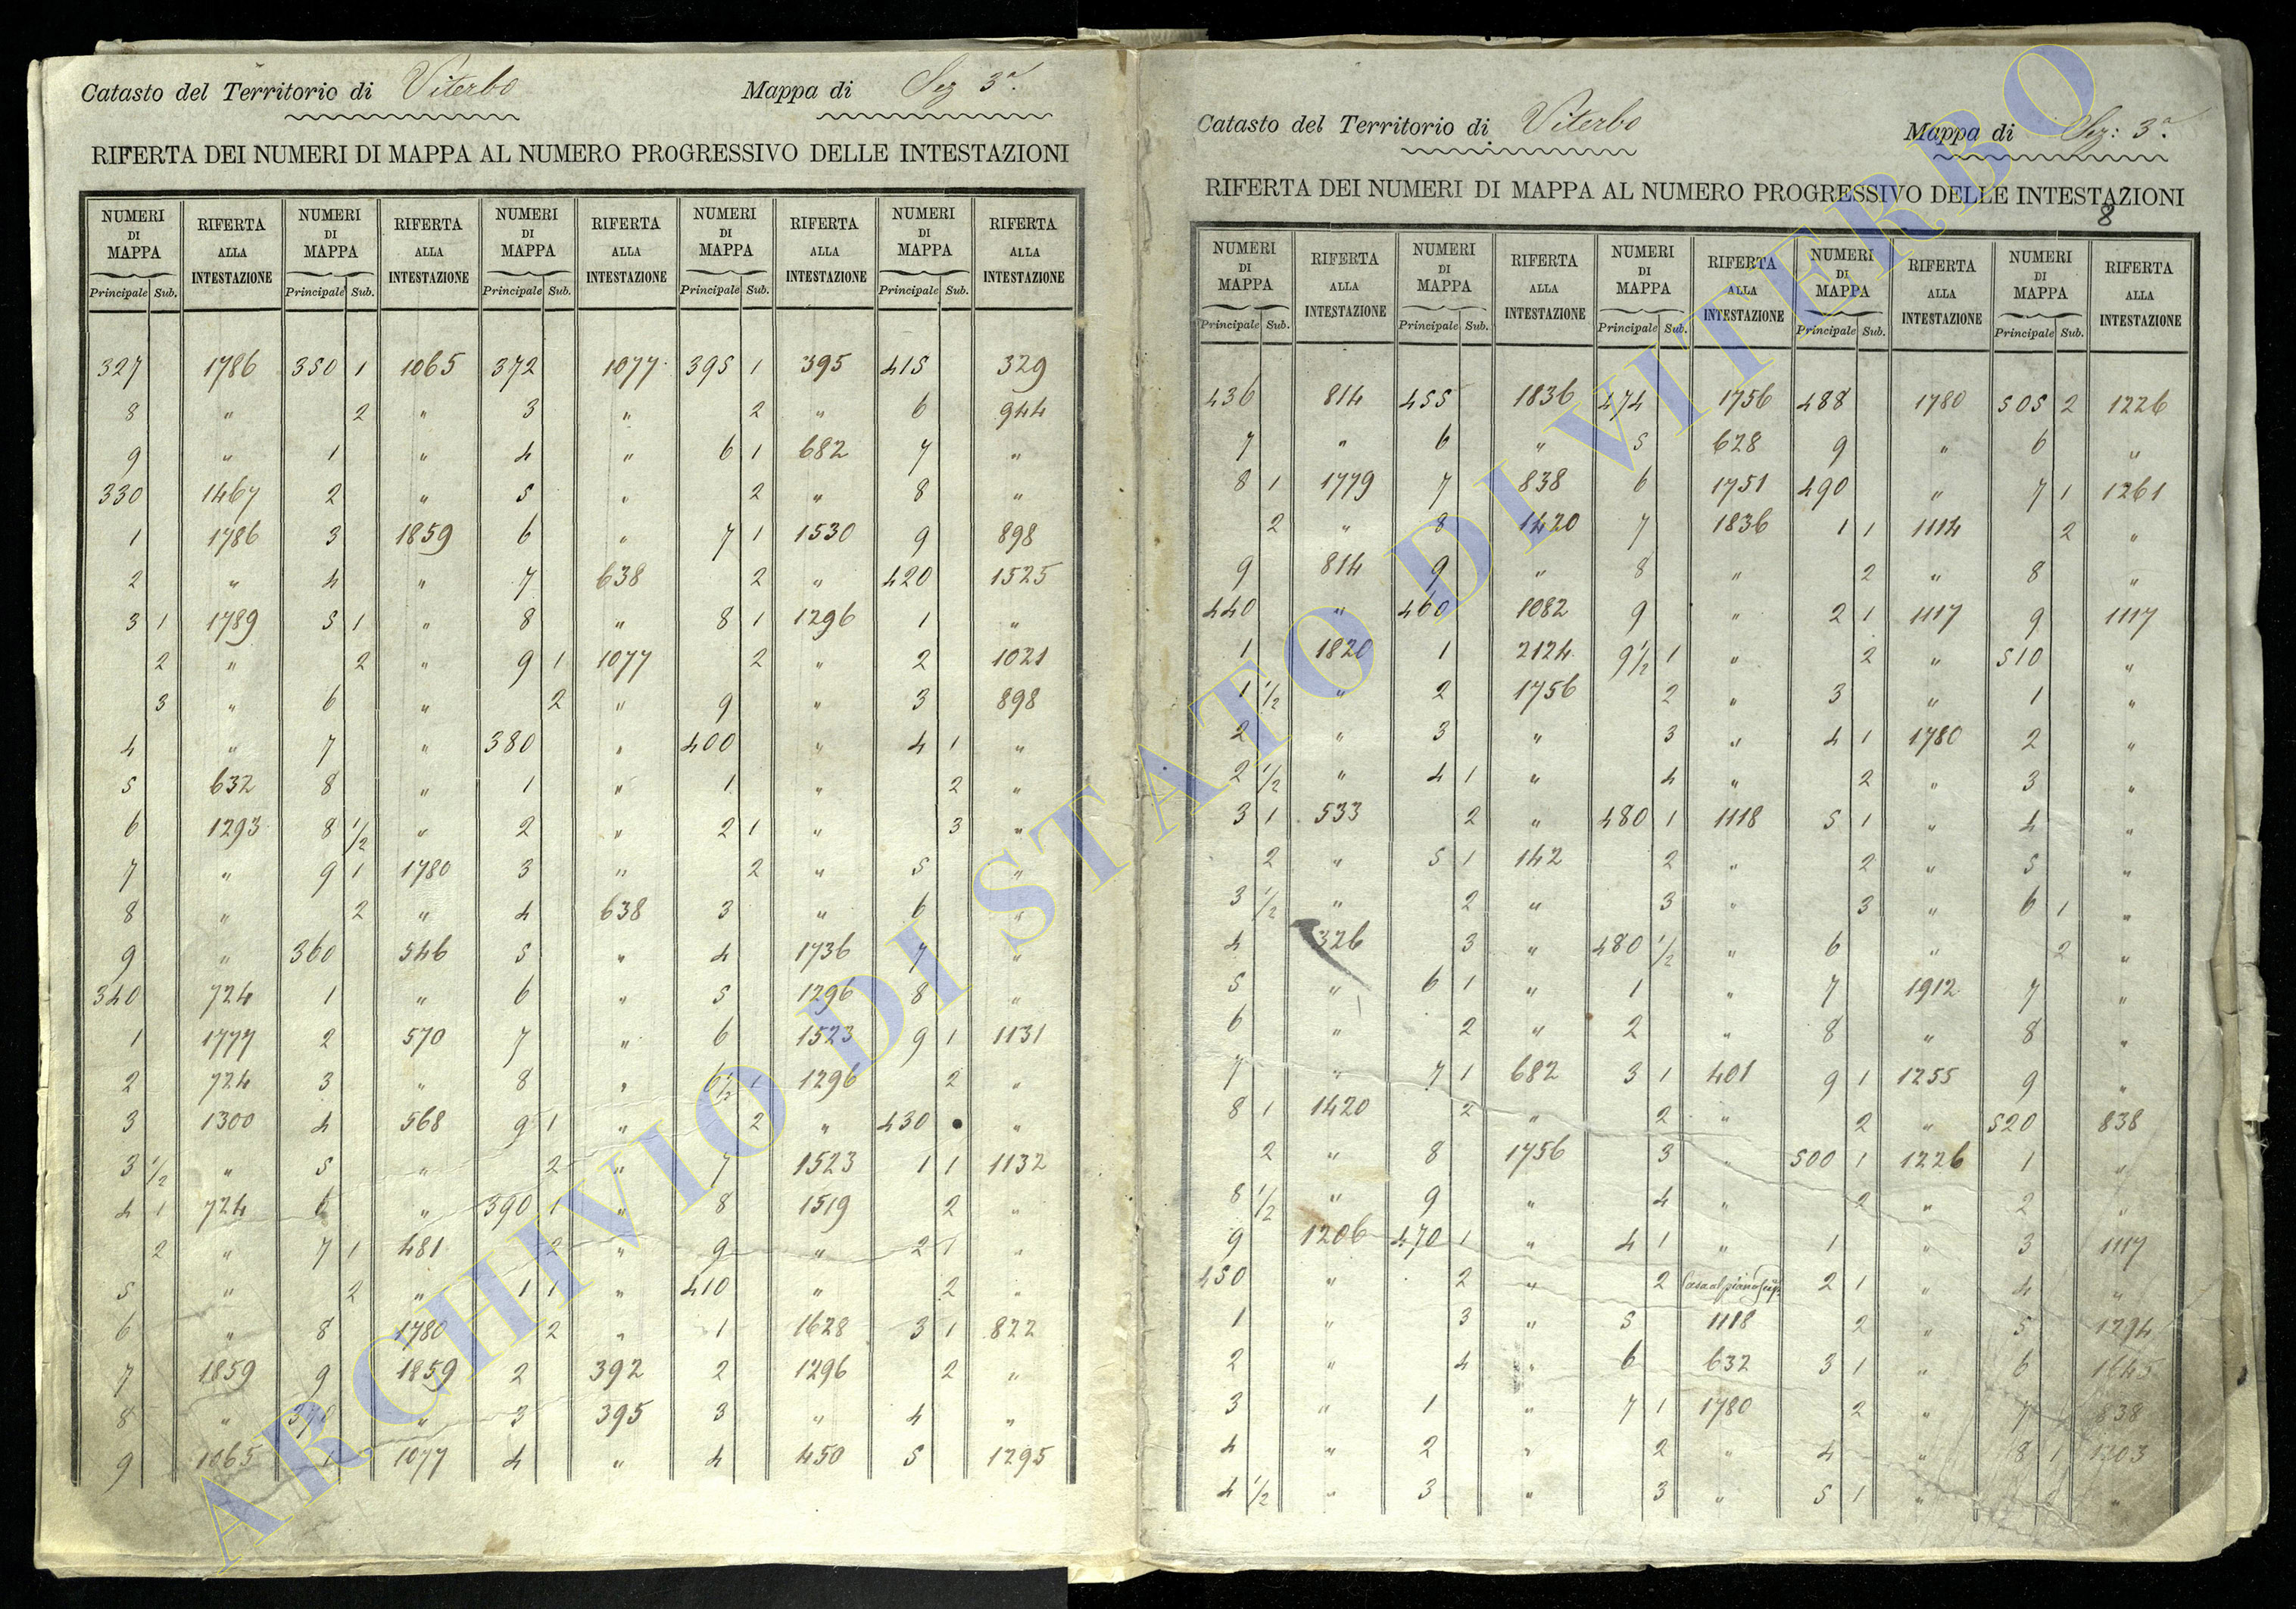 Catasto del Territorio di Viterbo Mappa di Sez 3ª.
RIFERTA DEI NUMERI DI MAPPA AL NUMERO PROGRESSIVO DELLE INTESTAZIONI
NUMERI DI MAPPA RIFERTA ALLA INTESTAZIONE NUMERI DI MAPPA RIFERTA ALLA INTESTAZIONE NUMERI DI MAPPA RIFERTA ALLA INTESTAZIONE NUMERI DI MAPPA RIFERTA ALLA INTESTAZIONE NUMERI DI MAPPA RIFERTA ALLA INTESTAZIONE
Principale Sub. Principale Sub. Principale Sub. Principale Sub. Principale Sub.
327 1786 350 1 1065 372 1077 395 1 395 415 329
8 " 2 " 3 " 2 " 6 944
9 " 1 " 4 " 6 1 682 7 "
330 1467 2 " 5 " 2 " 8 "
1 1786 3 1859 6 " 7 1 1530 9 898
2 " 4 " 7 638 2 " 420 1525
3 1 1789 5 1 " 8 " 8 1 1296 1 "
2 " 2 " 9 1 1077 2 " 2 1021
3 " 6 " 2 " 9 " 3 898
4 " 7 " 380 " 400 " 4 1 "
5 632 8 " 1 " 1 " 2 "
6 1293 8 1/2 " 2 " 2 1 " 3 "
7 " 9 1 1780 3 " 2 " 5 "
8 " 2 " 4 638 3 " 6 "
9 " 360 546 5 " 4 1736 7 "
340 724 1 " 6 " 5 1296 8 "
1 1777 2 570 7 " 6 1523 9 1 1131
2 724 3 " 8 " 6 1/2 1 1296 2 "
3 1300 4 568 9 1 " 2 " 430 • "
3 1/2 " 5 " 2 " 7 1523 1 1 1132
4 1 724 6 " 390 1 " 8 1519 2 "
2 " 7 1 481 2 " 9 " 2 1 "
5 " 2 " 1 1 " 410 " 2 "
6 " 8 1780 2 " 1 1628 3 1 822
7 1859 9 1859 2 392 2 1296 2 "
8 " 370 " 3 395 3 " 4 "
9 1065 1 1077 4 " 4 450 5 1295
Catasto del Territorio di Viterbo Mappa di Sez: 3ª.
RIFERTA DEI NUMERI DI MAPPA AL NUMERO PROGRESSIVO DELLE INTESTAZIONI
8
NUMERI DI MAPPA RIFERTA ALLA INTESTAZIONE NUMERI DI MAPPA RIFERTA ALLA INTESTAZIONE NUMERI DI MAPPA RIFERTA ALLA INTESTAZIONE NUMERI DI MAPPA RIFERTA ALLA INTESTAZIONE NUMERI DI MAPPA RIFERTA ALLA INTESTAZIONE
Principale Sub. Principale Sub. Principale Sub. Principale Sub. Principale Sub.
436 814 455 1836 474 1756 488 1780 505 2 1226
7 " 6 " 5 628 9 " 6 "
8 1 1779 7 838 6 1751 490 " 7 1 1261
2 " 8 1420 7 1836 1 1 1114 2 "
9 814 9 " 8 " 2 " 8 "
440 " 460 1082 9 " 2 1 1117 9 1117
1 1820 1 2124 9 1/2 1 " 2 " 510 "
1 1/2 " 2 1756 2 " 3 " 1 "
2 " 3 " 3 " 4 1 1780 2 "
2 1/2 " 4 1 " 4 " 2 " 3 "
3 1 533 2 " 480 1 1118 5 1 " 4 "
2 " 5 1 142 2 " 2 " 5 "
3 1/2 " 2 " 3 " 3 " 6 1 "
4 326 3 " 480 1/2 " 6 " 2 "
5 " 6 1 " 1 " 7 1912 7 "
6 " 2 " 2 " 8 " 8 "
7 " 7 1 682 3 1 401 9 1 1255 9 "
8 1 1420 2 " 2 " 2 " 520 838
2 " 8 1756 3 " 500 1 1226 1 "
8 1/2 " 9 " 4 " 2 " 2 "
9 1206 470 1 " 4 1 " 1 " 3 1117
450 " 2 " 2 Casa al piano sup 2 1 " 4 "
1 " 3 " 5 1118 2 " 5 1294
2 " 4 " 6 632 3 1 " 6 1645
3 " 1 " 7 1 1780 2 " 7 838
4 " 2 " 2 " 4 " 8 1 1203
4 1/2 " 3 " 3 " 5 1 " 2 "
ARCHIVIO DI STATO DI VITERBO